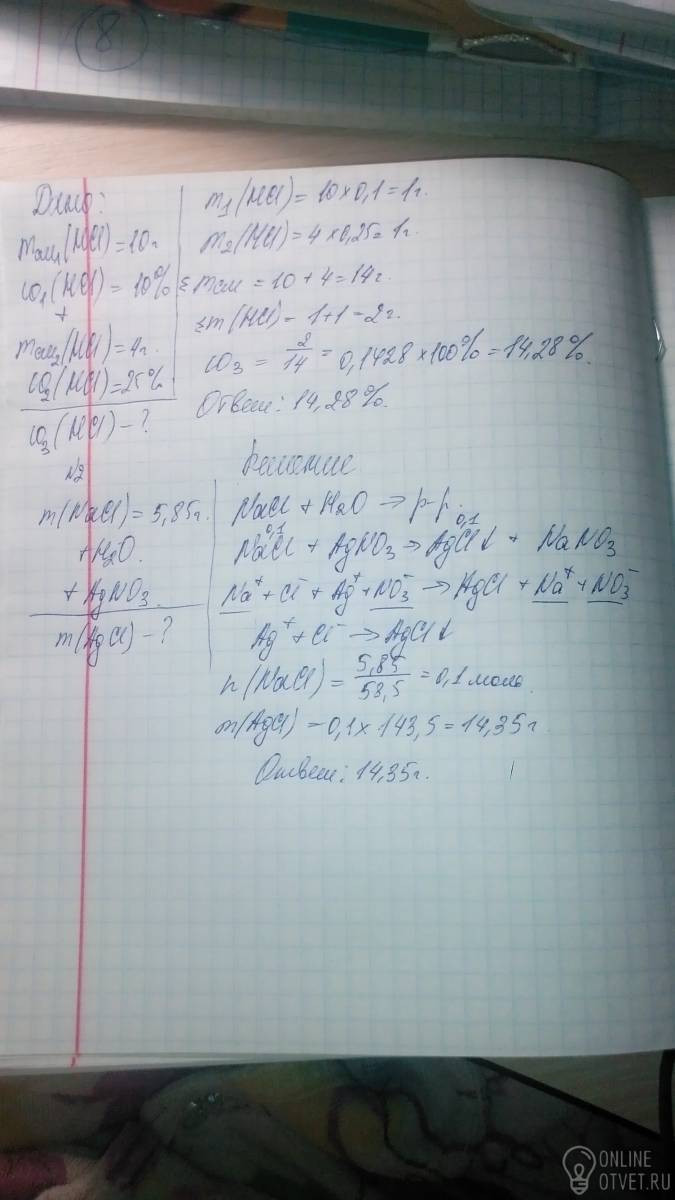 8
Дано:
mсм₁(HCl) = 10г
ω₁(HCl) = 10%
+
mсм₂(HCl) = 4г.
ω₂(HCl) = 25%
ω₃(HCl) - ?
m₁(HCl) = 10 × 0,1 = 1г.
m₂(HCl) = 4 × 0,25 = 1г.
Σmсм = 10 + 4 = 14г.
Σm(HCl) = 1+1 = 2г.
ω₃ = 2/14 = 0,1428 × 100% = 14,28%.
Ответ: 14,28%.
N2
m(NaCl) = 5,85г.
+ H₂O.
+ AgNO₃.
m(AgCl) - ?
Решение
NaCl + H₂O → р-р.
0,1 0,1
NaCl + AgNO₃ → AgCl↓ + NaNO₃
Na⁺ + Cl⁻ + Ag⁺ + NO₃⁻ → AgCl + Na⁺ + NO₃⁻
Ag⁺ + Cl⁻ → AgCl↓
n(NaCl) = 5,85/58,5 = 0,1 моль.
m(AgCl) = 0,1 × 143,5 = 14,35г.
Ответ: 14,35г.
ONLINE
OTVET.RU